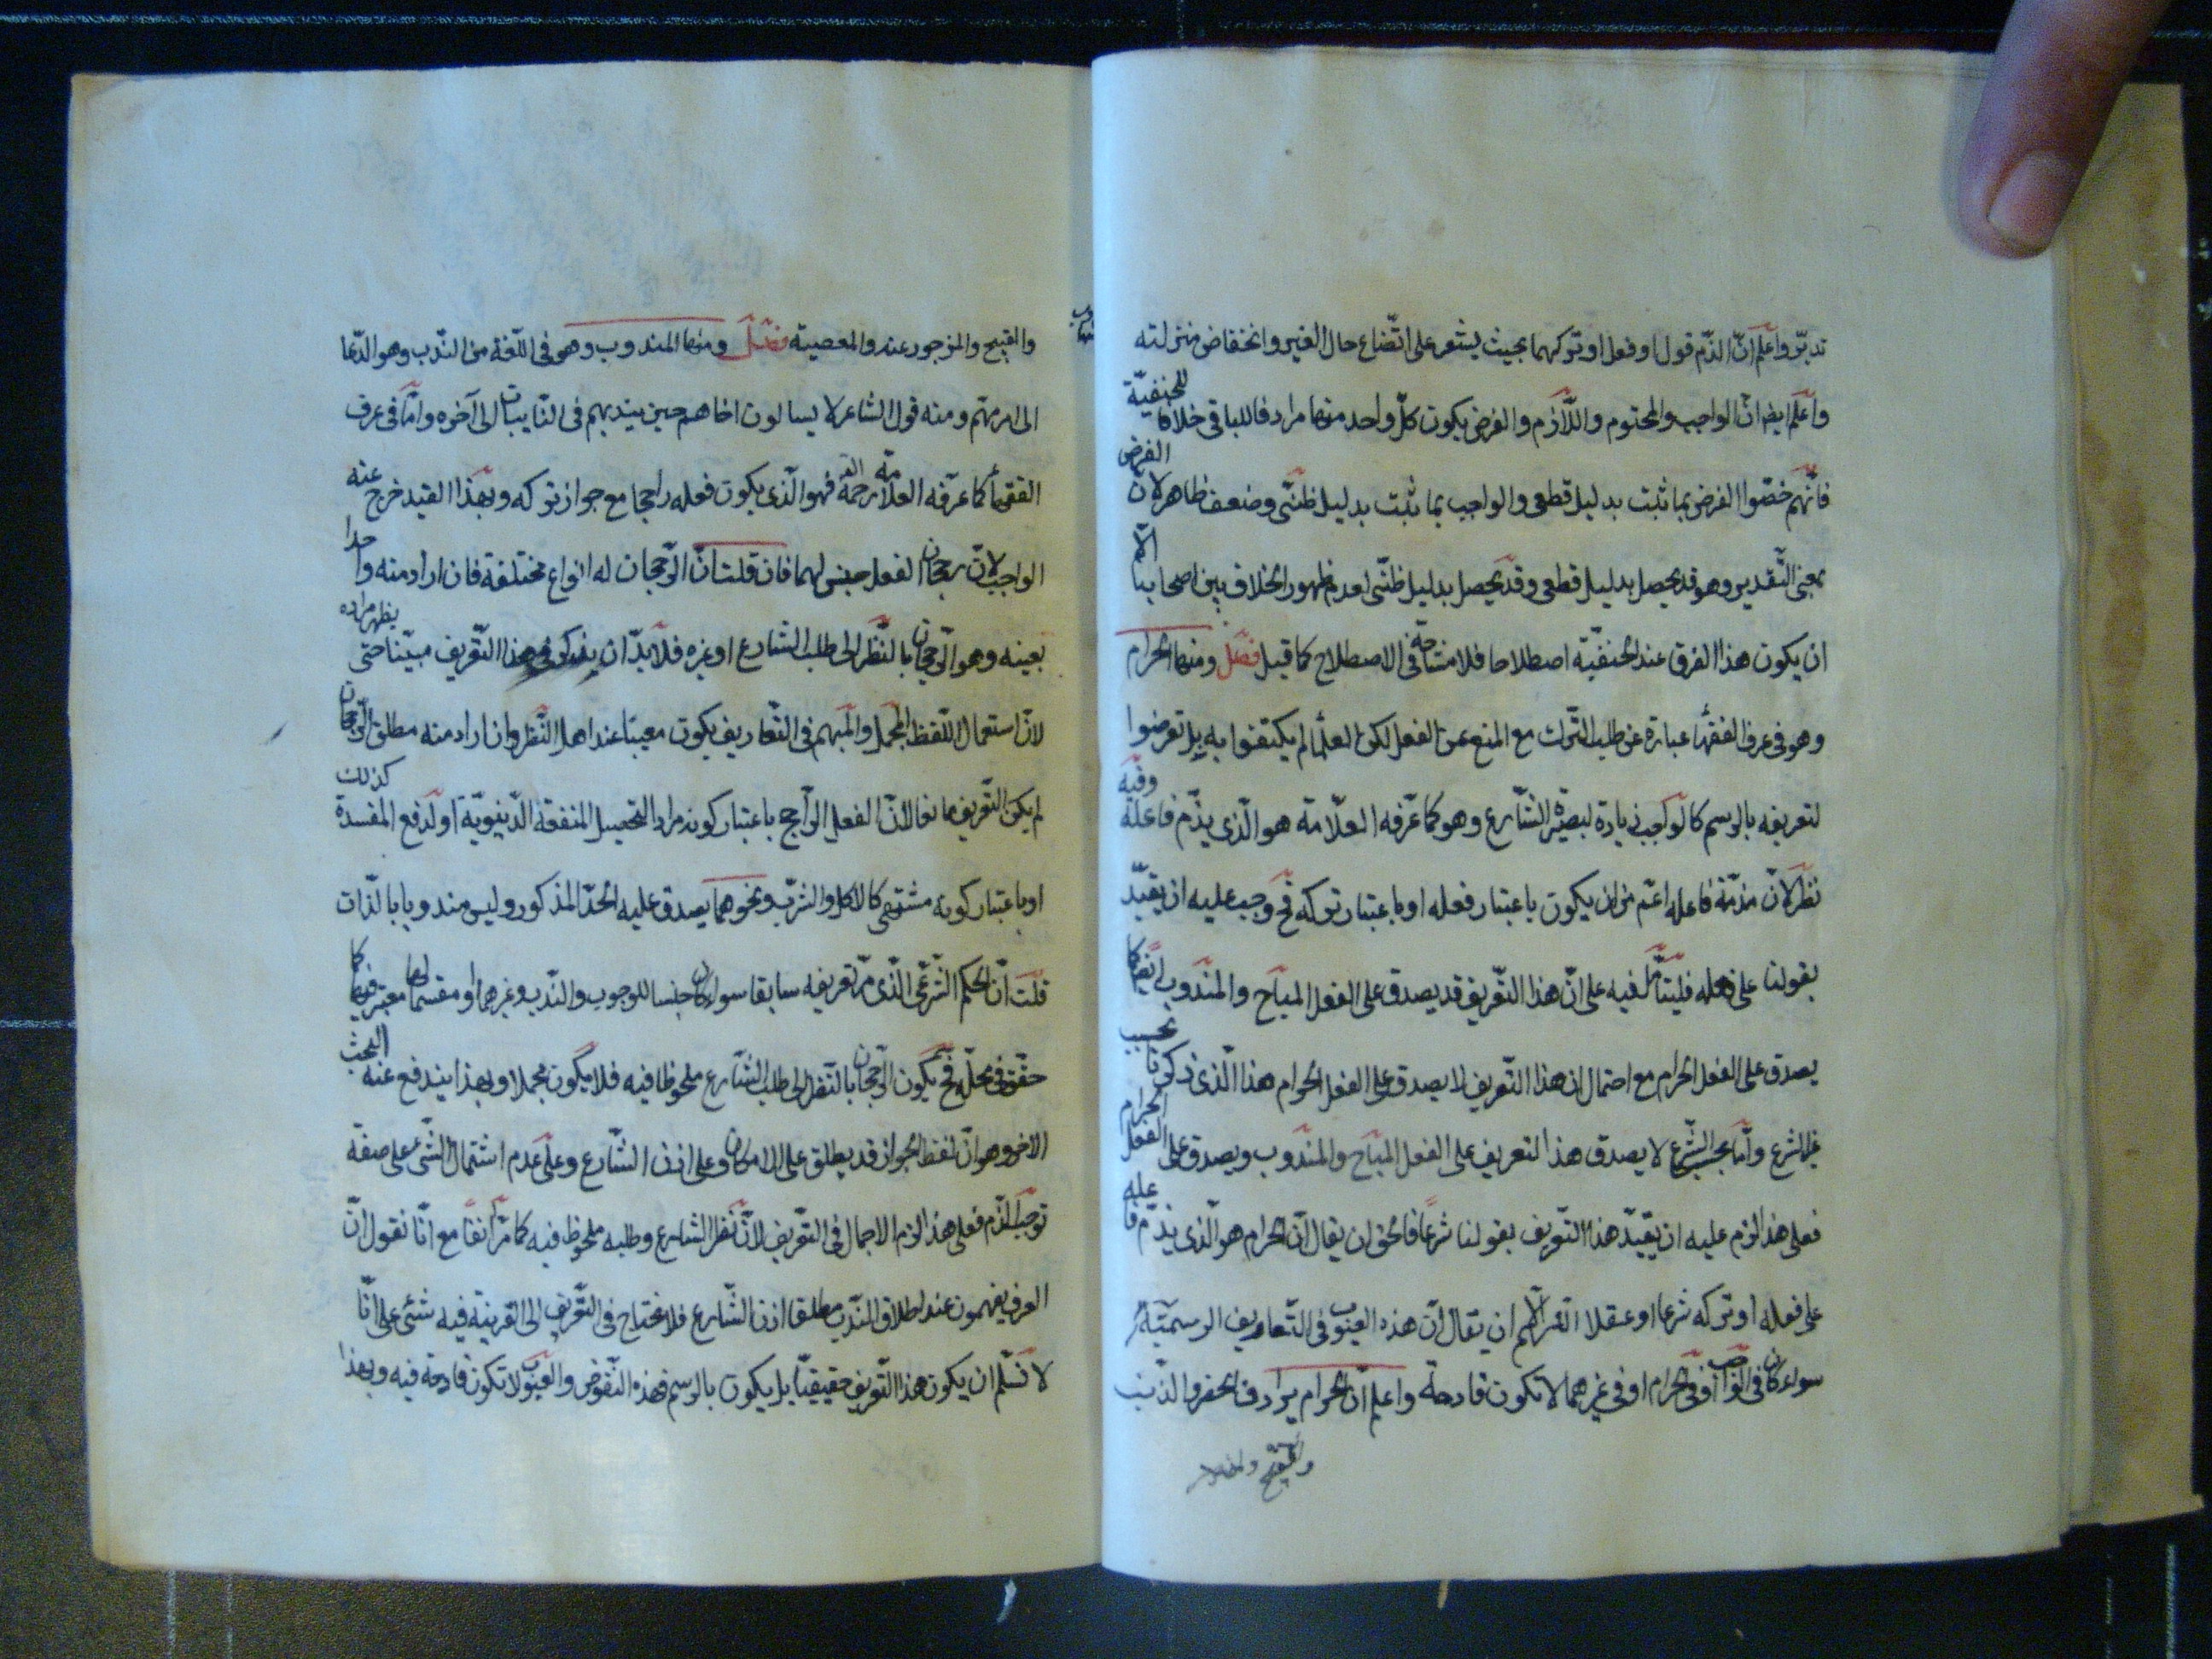 تدبّر واعلم انّ الذّم قول او فعل او تركهما بحيث يشعر على اتّضاع حال الغير وانخفاض منزلته
واعلم ايضا انّ الواجب والمحتوم واللّازم والفرض يكون كلّ واحد منهما مرادفا للباقى خلافا للحنفيّة
فانّهم خصّوا الفرض بما ثبت بدليل قطعى والواجب بما ثبت بدليل ظنّى وضعف ظاهر لانّ الفرض
بمعنى التّقدير وهو قد يحصل بدليل قطعى وقد يحصل بدليل ظنّى لعدم ظهور الخلاف بين اصحابنا الّا
ان يكون هذا الفرق عند الحنفيّة اصطلاحا فلا مشاحّة فى الاصطلاح كما قيل فصل ومنها الحرام
وهو فى عرف الفقهاء عبارة عن طلب التّرك مع المنع عن الفعل لكن العلماء لم يكتفوا به بل تعرضوا
لتعريفه بالرسم كالواجب زيادة لبصيرة الشّارع وهو كما عرّفه العلّامة هو الّذى يذّم فاعله وفيه
نظر لانّ مذمّة فاعله اعّم من ان يكون باعتبار فعله او باعتبار تركه فح وجب عليه ان يقيّد
بقولنا على فعله فليتأمّل فيه على انّ هذا التّعريف قد يصدق على الفعل المباح والمندوب ايضا كما
يصدق على الفعل الحرام مع احتمال ان هذا التّعريف لا يصدق على الفعل الحرام هذا الّذى ذكرنا بحسب
غير الشرع وامّا بحسب الشّرع لا يصدق هذا التعريف على الفعل المباح والمندوب ويصدق على الفعل الحرام
فعلى هذا لزم عليه ان يقيّد هذا التّعريف بقولنا شرعًا فالحق ان يقال انّ الحرام هو الّذى يذّم فاعله
على فعله او تركه شرعا او عقلا الّلهم الّا ان يقال انّ هذه العيوب فى التّعاريف الرسميّة
سواء كان فى الواجب او فى الحرام او فى غيرهما لا تكون قادحة واعلم انّ الحرام يرادف الحظر والذّنب
والقبيح والمزجور
والقبيح والمزجور عنه والمعصية فصل ومنها المندوب وهو فى اللّغة من النّدب وهو الدّعا
الى امر مهّم ومنه قول الشاعر لا يسالون اخاهم حين يندبهم فى النّايبات الى آخره وامّا فى عرف
الفقهاء كما عرّفه العلّامة رحمه الله فهو الّذى يكون فعله راجحا مع جواز تركه وبهذا القيد خرج عنه
الواجب لانّ رجحان الفعل جنس لهما فان قلت انّ الرّجحان له انواع مختلفة فان اراد منه واحدا
بعينه وهو الرّجحان بالنّظر الى طلب الشارع او غيره فلا بدّ ان يذكر فى هذا التّعريف مبيّنا حتى يظهر مراده
لانّ استعمال اللّفظ المجمل والمبهم فى التّعاريف يكون معيبا عند اهل النّظر وان اراد منه مطلق الرّجحان
لم يكن التّعريف مانعا لانّ الفعل الرّاجح باعتبار كونه مرادا لتحصيل المنفعة الدّنيويّة او لدفع المفسدة كذلك
او باعتبار كونه مشتهى كالاكل والشرب ونحوهما يصدق عليه الحدّ المذكور وليس مندوبا بالذّات
قلت انّ الحكم الشّرعّى الّذى مرّ تعريفه سابقا سواء كان جنسا للوجوب والنّدب وغيرهما او مقسما لها معتبر فيها كما
حقّق فى محلّه فح يكون الرّجحان بالنّظر الى طلب الشّارع ملحوظا فيه فلا يكون مجملا وبهذا يندفع عنه البحث
الاخر وهو انّ لفظ الجواز قد يطلق على الامكان وعلى اذن الشّارع وعلى عدم اشتمال الشّىء على صفة
توجب الذّم فعلى هذا لزم الاجمال فى التّعريف لانّ نظر الشارع وطلبه ملحوظ فيه كما مرّ آنفًا مع انّا نقول انّ
العرف يفهمون عند اطلاق النّدب مطلقا اذن الشّارع فلا نحتاج فى التّعريف الى القرينة فيه شئى على انّا
لا نسّلم ان يكون هذا التّعريف حقيقيّا بل يكون بالرسم فهذه النّقوض والعيوب لا تكون قادحة فيه وبهذا